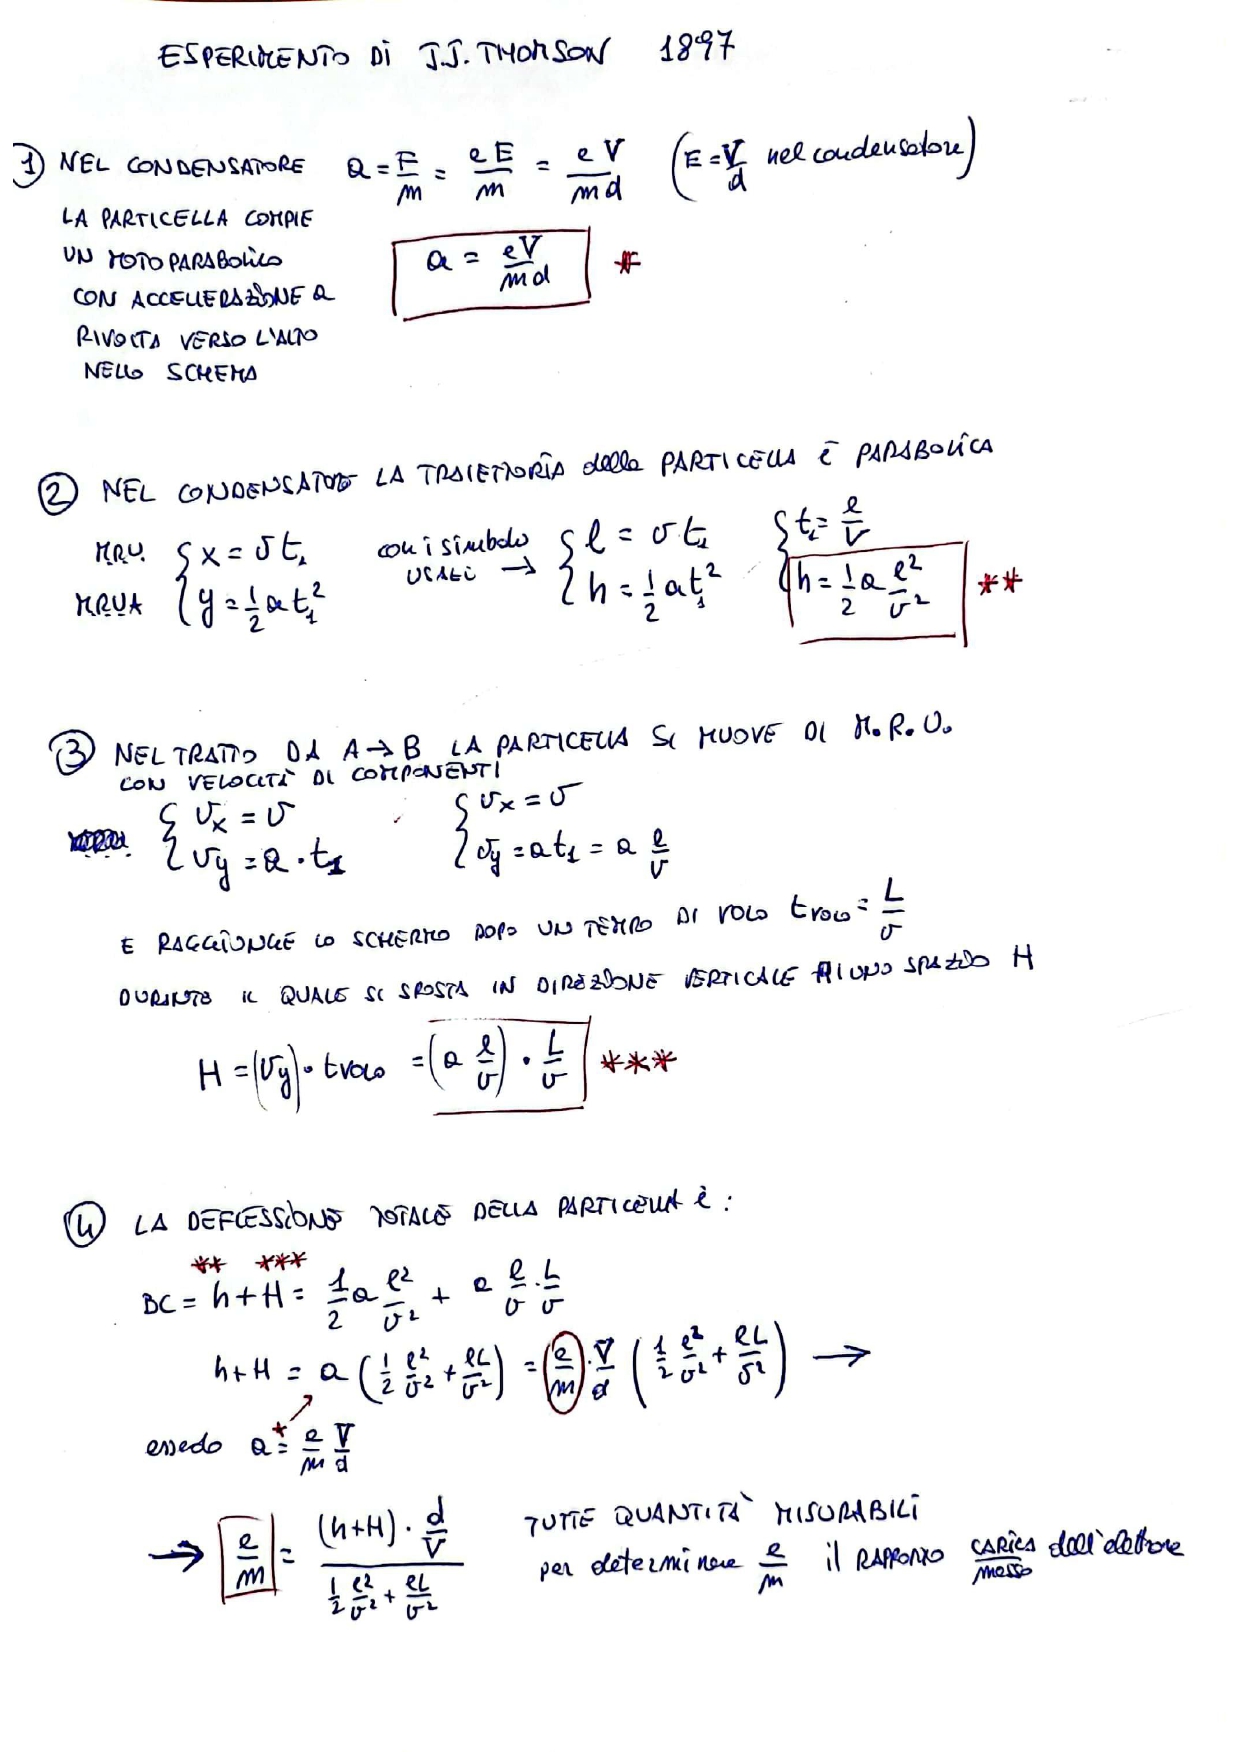 ESPERIMENTO DI J.J. THOMSON 1897
1 NEL CONDENSATORE a = F/m = eE/m = eV/md (E = V/d nel condensatore)
LA PARTICELLA COMPIE
UN MOTO PARABOLICO a = eV/md *
CON ACCELLERAZIONE a
RIVOLTA VERSO L'ALTO
NELLO SCHEMA
2 NEL CONDENSATORE LA TRAIETTORIA della PARTICELLA È PARABOLICA
MRU. { x = v t₁ con i simboli { l = v t₁ { t₁ = l/v
MRUA { y = 1/2 a t₁² USATI → { h = 1/2 a t₁² { h = 1/2 a l²/v² **
3 NEL TRATTO DA A → B LA PARTICELLA SI MUOVE DI M.R.U.
CON VELOCITÀ DI COMPONENTI
{ vx = v { vx = v
{ vy = a · t₁ { vy = a t₁ = a l/v
E RAGGIUNGE LO SCHERMO DOPO UN TEMPO DI VOLO t volo = L/v
DURANTE IL QUALE SI SPOSTA IN DIREZIONE VERTICALE DI UNO SPAZIO H
H = (vy) · t volo = (a l/v) · L/v ***
4 LA DEFLESSIONE TOTALE DELLA PARTICELLA È :
** ***
BC = h + H = 1/2 a l²/v² + a l/v · L/v
h + H = a (1/2 l²/v² + lL/v²) = (e/m) · V/d (1/2 l²/v² + lL/v²) →
essedo a *= e/m V/d
→ e/m = (h+H) · d/V / (1/2 l²/v² + lL/v²) TUTTE QUANTITÀ MISURABILI
per determinare e/m il RAPPORTO CARICA/massa dell'elettrone